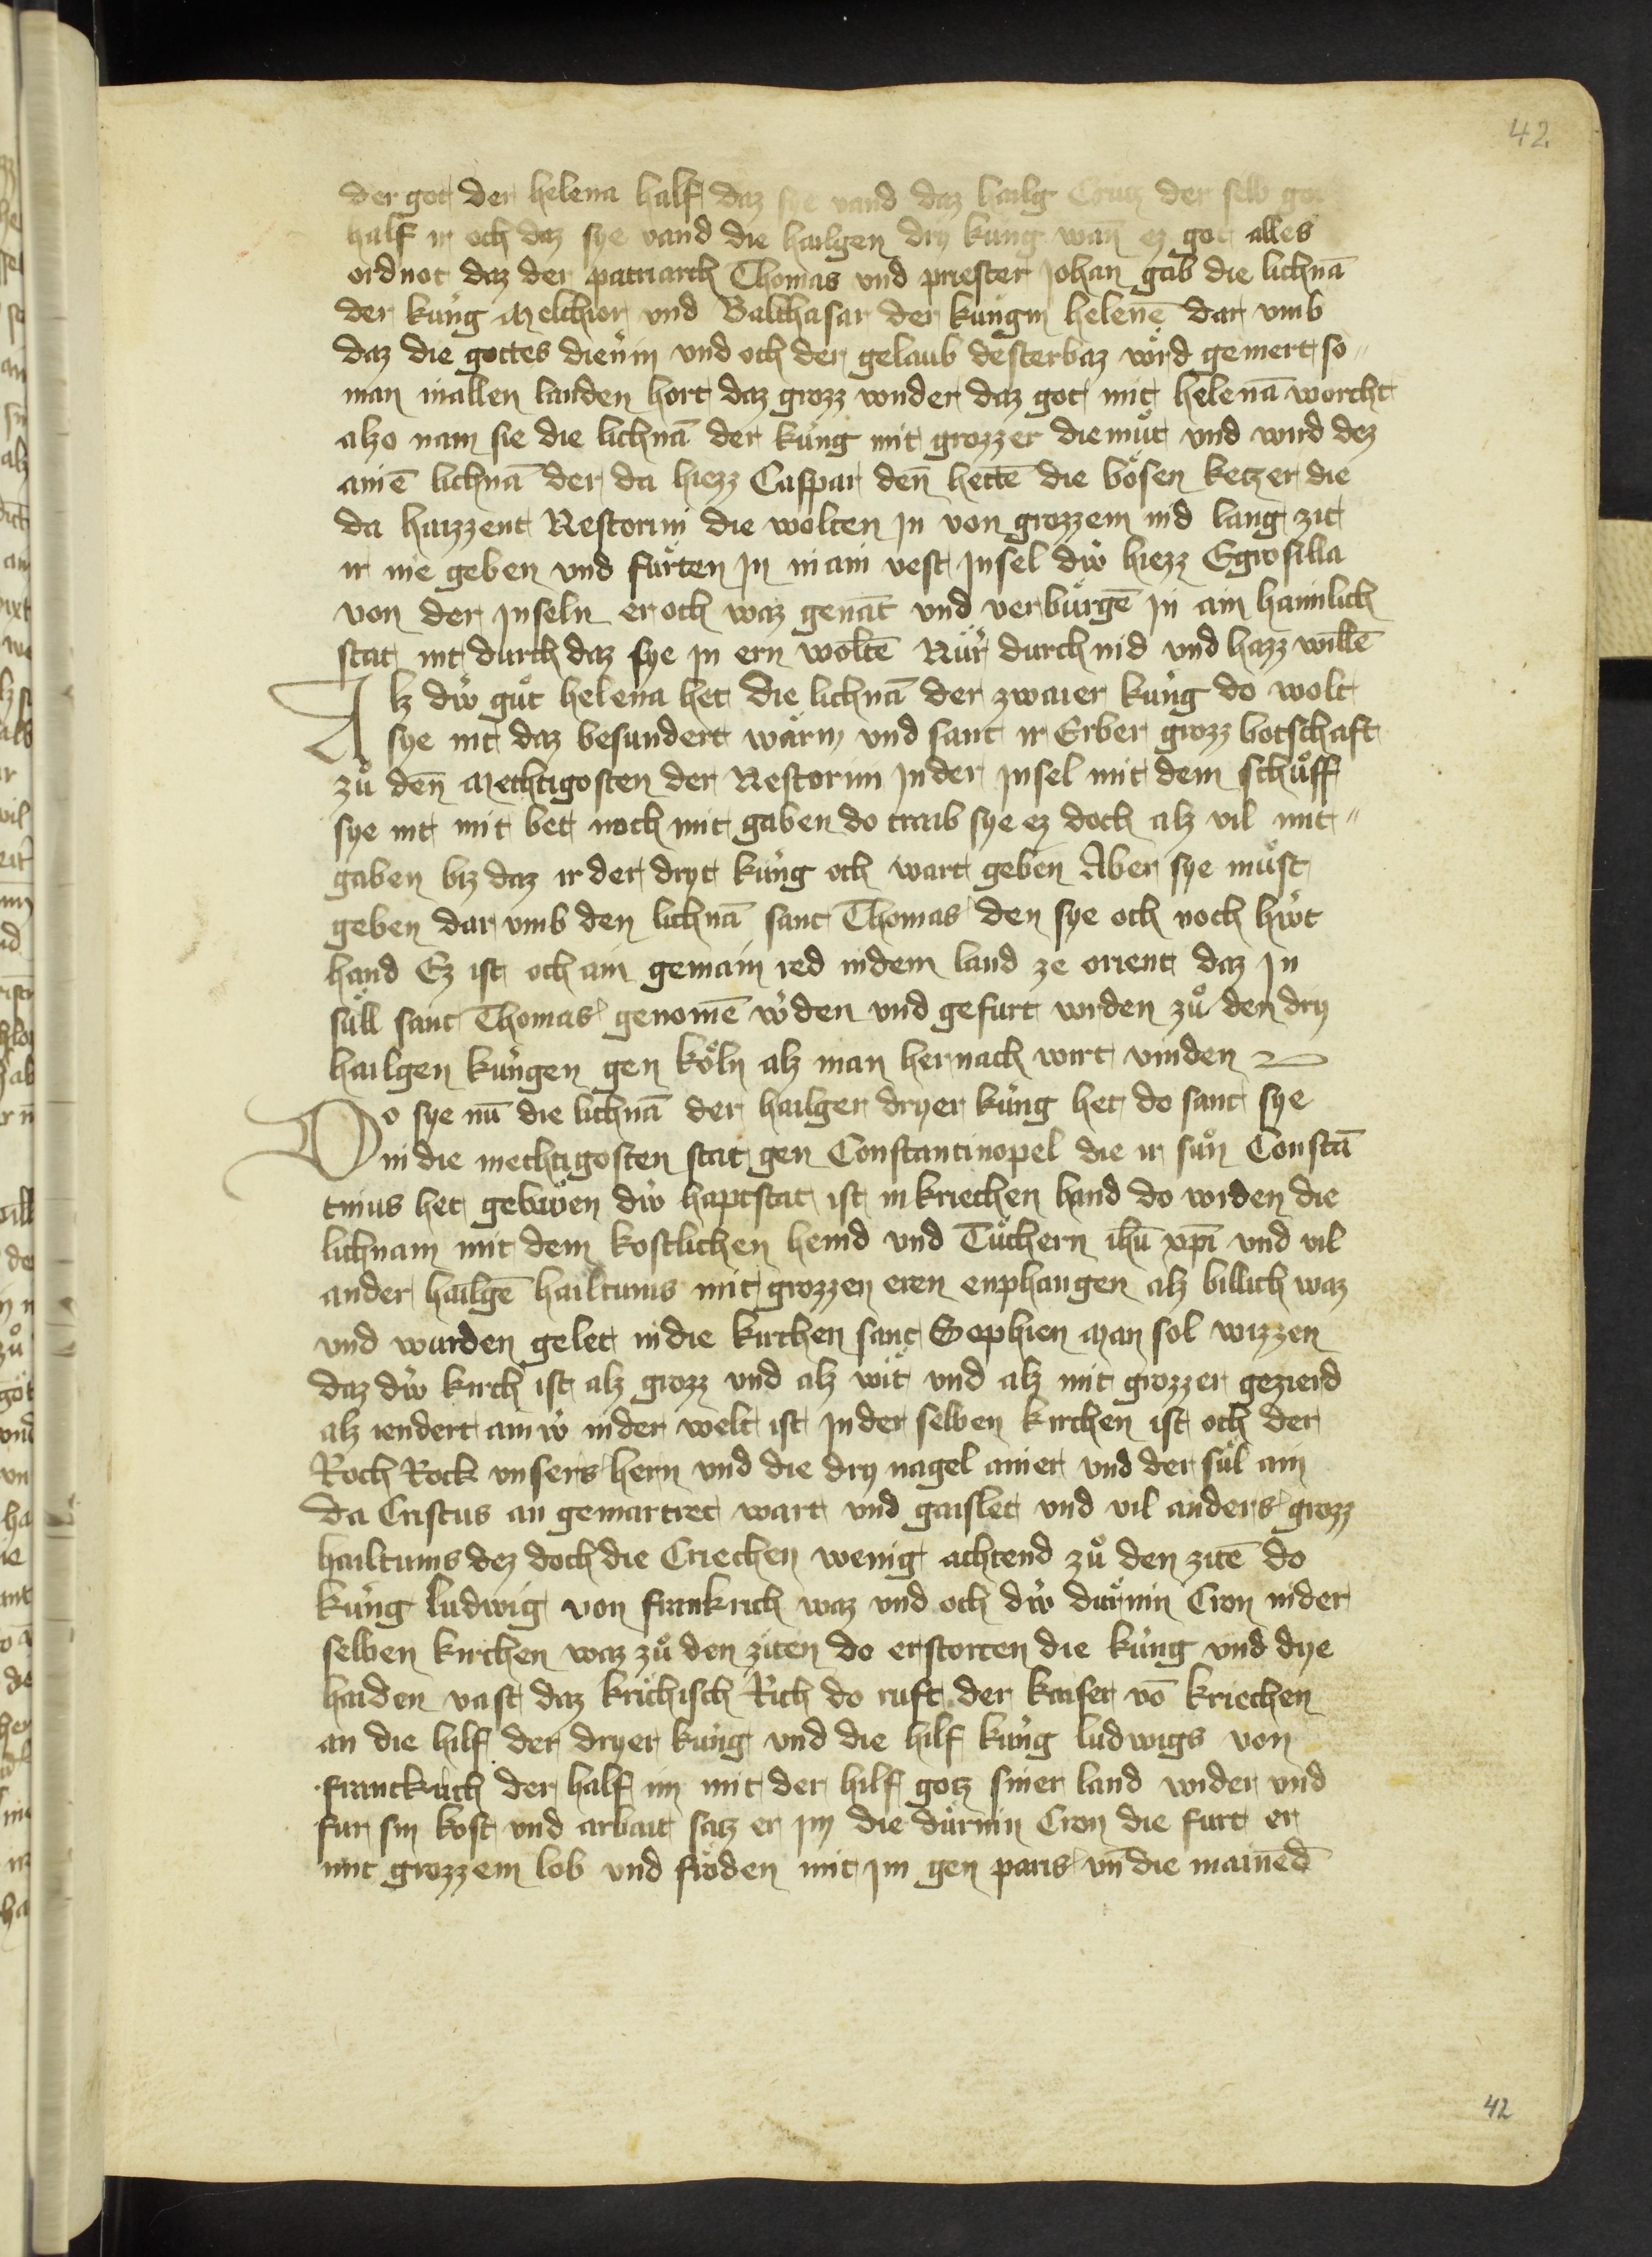 42
der got der helena half daz sye vand daz hailg Crutz der selb got
half ir och daz sye vand die hailgen dry kung wan ez got alles
ordnot daz der patriarch Thomas vnd priester Johan gab die lichnā
der kúng Melchior vnd Balthasar der kúngin helenē dar vmb
daz die gottes dienˀin vnd och der gelaub desterbaz wͤrd gemert so〃
man inallen landen hort daz grozz wnder daz got mit helenā worcht
alzo nam sie die lichnā der kúng mit grozzer diemuͤt vnd wird dez
ainē lichnā der da hiezz Caspar den̄ hettē die boͤsen ketzer die
da haizzent Nestorini die wolten jn von grozzem nid lang zit
ir nie geben vnd fuͤrten jn in ain vest jnsel dẃ hiezz Egrosilla
von der jnseln er och waz genāt vnd verbúrgē jn ain haimlich
stat nit durch daz sye jn ern woltē Núr durch nid vnd hazz willē
Alz dẃ guͦt helena het die lichnā der zwaier kúng do wolt
sye nit daz besundert waͤrin vnd sant ir Erber grozz botschaft
zuͦ den̄ Mechtigosten der Nestorini jn der jnsel mit dem schuͦff
sye nit mit bet noch mit gaben do traib sye ez doch alz vil mit〃
gaben biz daz ir der dryt kúng och wart geben Aber sye muͦst
geben dar vmb den lichnā sant Thomas den sye och noch hẃt
hand Ez ist och ain gemain red indem land ze orient daz jn
súll sant Thomas genomē wˀden vnd gefurt wrden zuͦ den dry
hailgen kúngen gen koͤln alz man hernach wirt vinden
Do sye nū die lichnā der hailger dryer kúng het do sant sye
in die mechtigosten stat gen Constantinopel die ir suͦn Constā
tinus het gebẃen dẃ haptstat ist in kriechen land do wrden die
lichnam mit dem kostlichen hemd vnd Tuͤchern ihū xp̄i vnd vil
ander hailgē hailtums mit grozzen eren enphangen alz billich waz
vnd wurden gelet in die kirchen sant Sophien Man sol wizzen
daz dẃ kirch ist alz grozz vnd alz wit vnd alz mit grozzer gezierd
alz iendert ainẃ inder welt ist jn der selben kirchen ist och der
Roch Rock vnsers hern vnd die dry nagel ainer vnd der súl ain
da Cristus an gemartret wart vnd gaislet vnd vil anders grozz
hailtums dez doch die Criechen wenig achtend zuͦ den zitē do
kúng ludwig von frankrich waz vnd och dẃ dúrnin Cron inder
selben kirchen waz zuͦ den ziten do erstorten die kúng vnd dye
haiden vast daz krichisch Rich do ruft der kaiser vō kriechen
an die hilf der dryer kúng vnd die hilf kúng ludwigs von
franckrich der half im mit der hilf gotz siner land wider vnd
fur sin kost vnd arbait satz er jm die dúrnin Cron die furt er
mit grozzem lob vnd froͤden mit jm gen paris vn̄ die mainēd
42